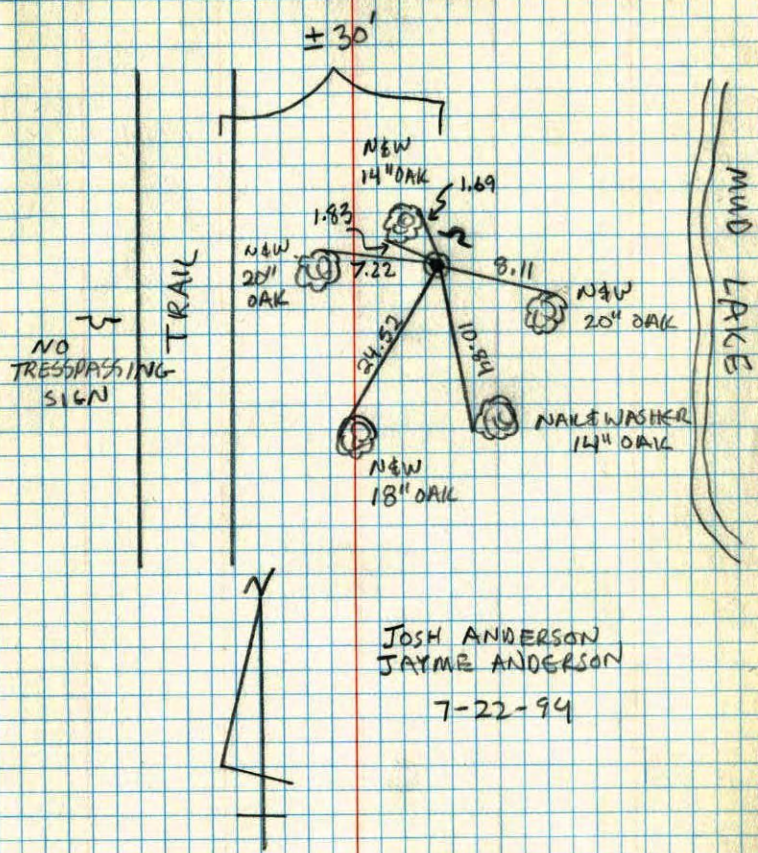 ± 30'
N&W
14" OAK
1.69
1.83
N&W
20"
OAK
7.22
8.11
N&W
20" OAK
MUD LAKE
TRAIL
NO
TRESSPASSING
SIGN
24.52
10.84
NAIL & WASHER
14" OAK
N&W
18" OAK
N
JOSH ANDERSON
JAYME ANDERSON
7-22-94